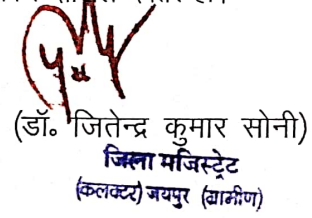 (डॉ० जितेन्द्र कुमार सोनी)
जिला मजिस्ट्रेट
(कलक्टर) जयपुर (ग्रामीण)